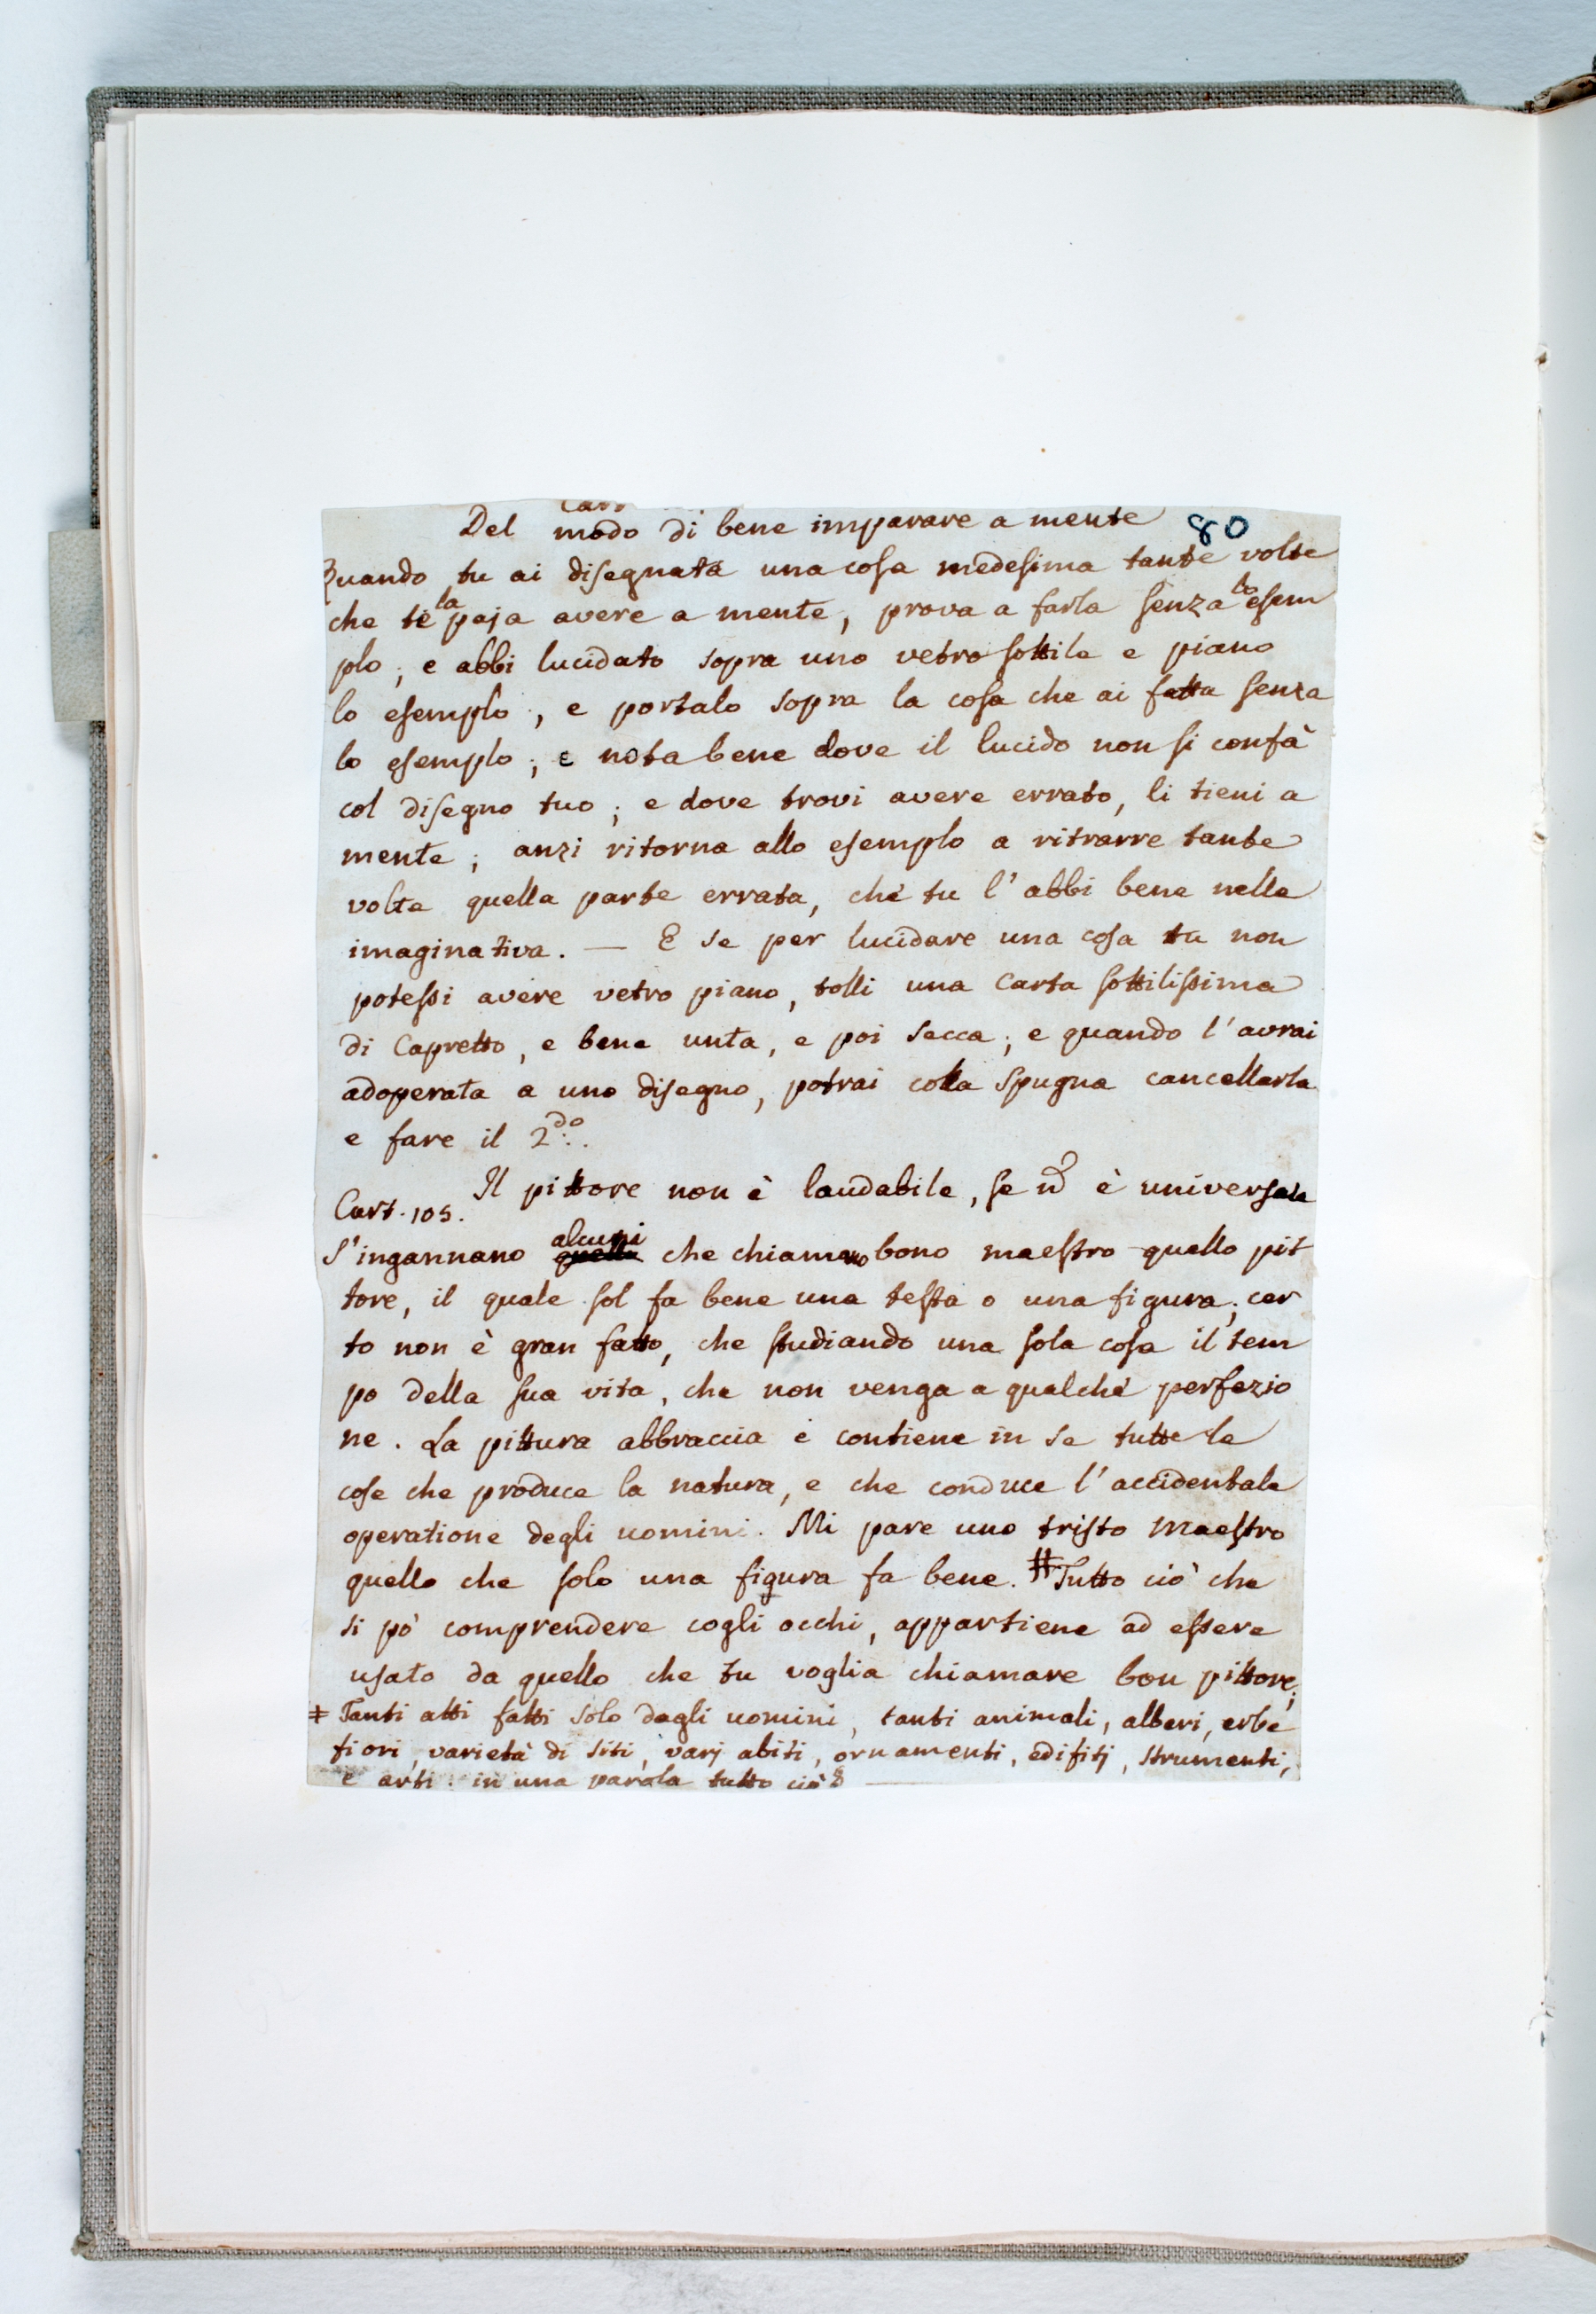 Cart
Del modo di bene imparare a mente 80
Quando tu ai disegnata una cosa medesima tante volte
che te la paja avere a mente, prova a farla senza lo esem
plo; e abbi lucidato sopra uno vetro sottile e piano
lo esemplo, e portalo sopra la cosa che ai fatta senza
lo esemplo; e nota bene dove il lucido non si confà
col disegno tuo; e dove trovi avere errato, li tieni a
mente; anzi ritorna allo esemplo a ritrarre tante
volte quella parte errata, che tu l'abbi bene nella
imaginativa. — E se per lucidare una cosa tu non
potessi avere vetro piano, tolli una carta sottilissima
di Capretto, e bene unta, e poi secca; e quando l'avrai
adoperata a uno disegno, potrai colla Spugna cancellarla
e fare il 2do.
Il pittore non è laudabile, se nō è universale
Cart. 105.
S'ingannano quelli alcuni che chiamano bono maestro quello pit
tore, il quale sol fa bene una testa o una figura; cer
to non è gran fatto, che studiando una sola cosa il tem
po della sua vita, che non venga a qualche perfezio
ne. La pittura abbraccia e contiene in se tutte le
cose che produce la natura, e che conduce l'accidentale
operatione degli uomini. Mi pare uno tristo Maestro
quello che solo una figura fa bene. ‡Tutto ciò che
si pò comprendere cogli occhi, appartiene ad essere
usato da quello che tu voglia chiamare bon pittore;
‡ Tanti atti fatti solo dagli uomini, tanti animali, alberi, erbe
fiori, varietà di siti, varj abiti, ornamenti, edifitj, strumenti,
e arti: in una parola tutto ciò